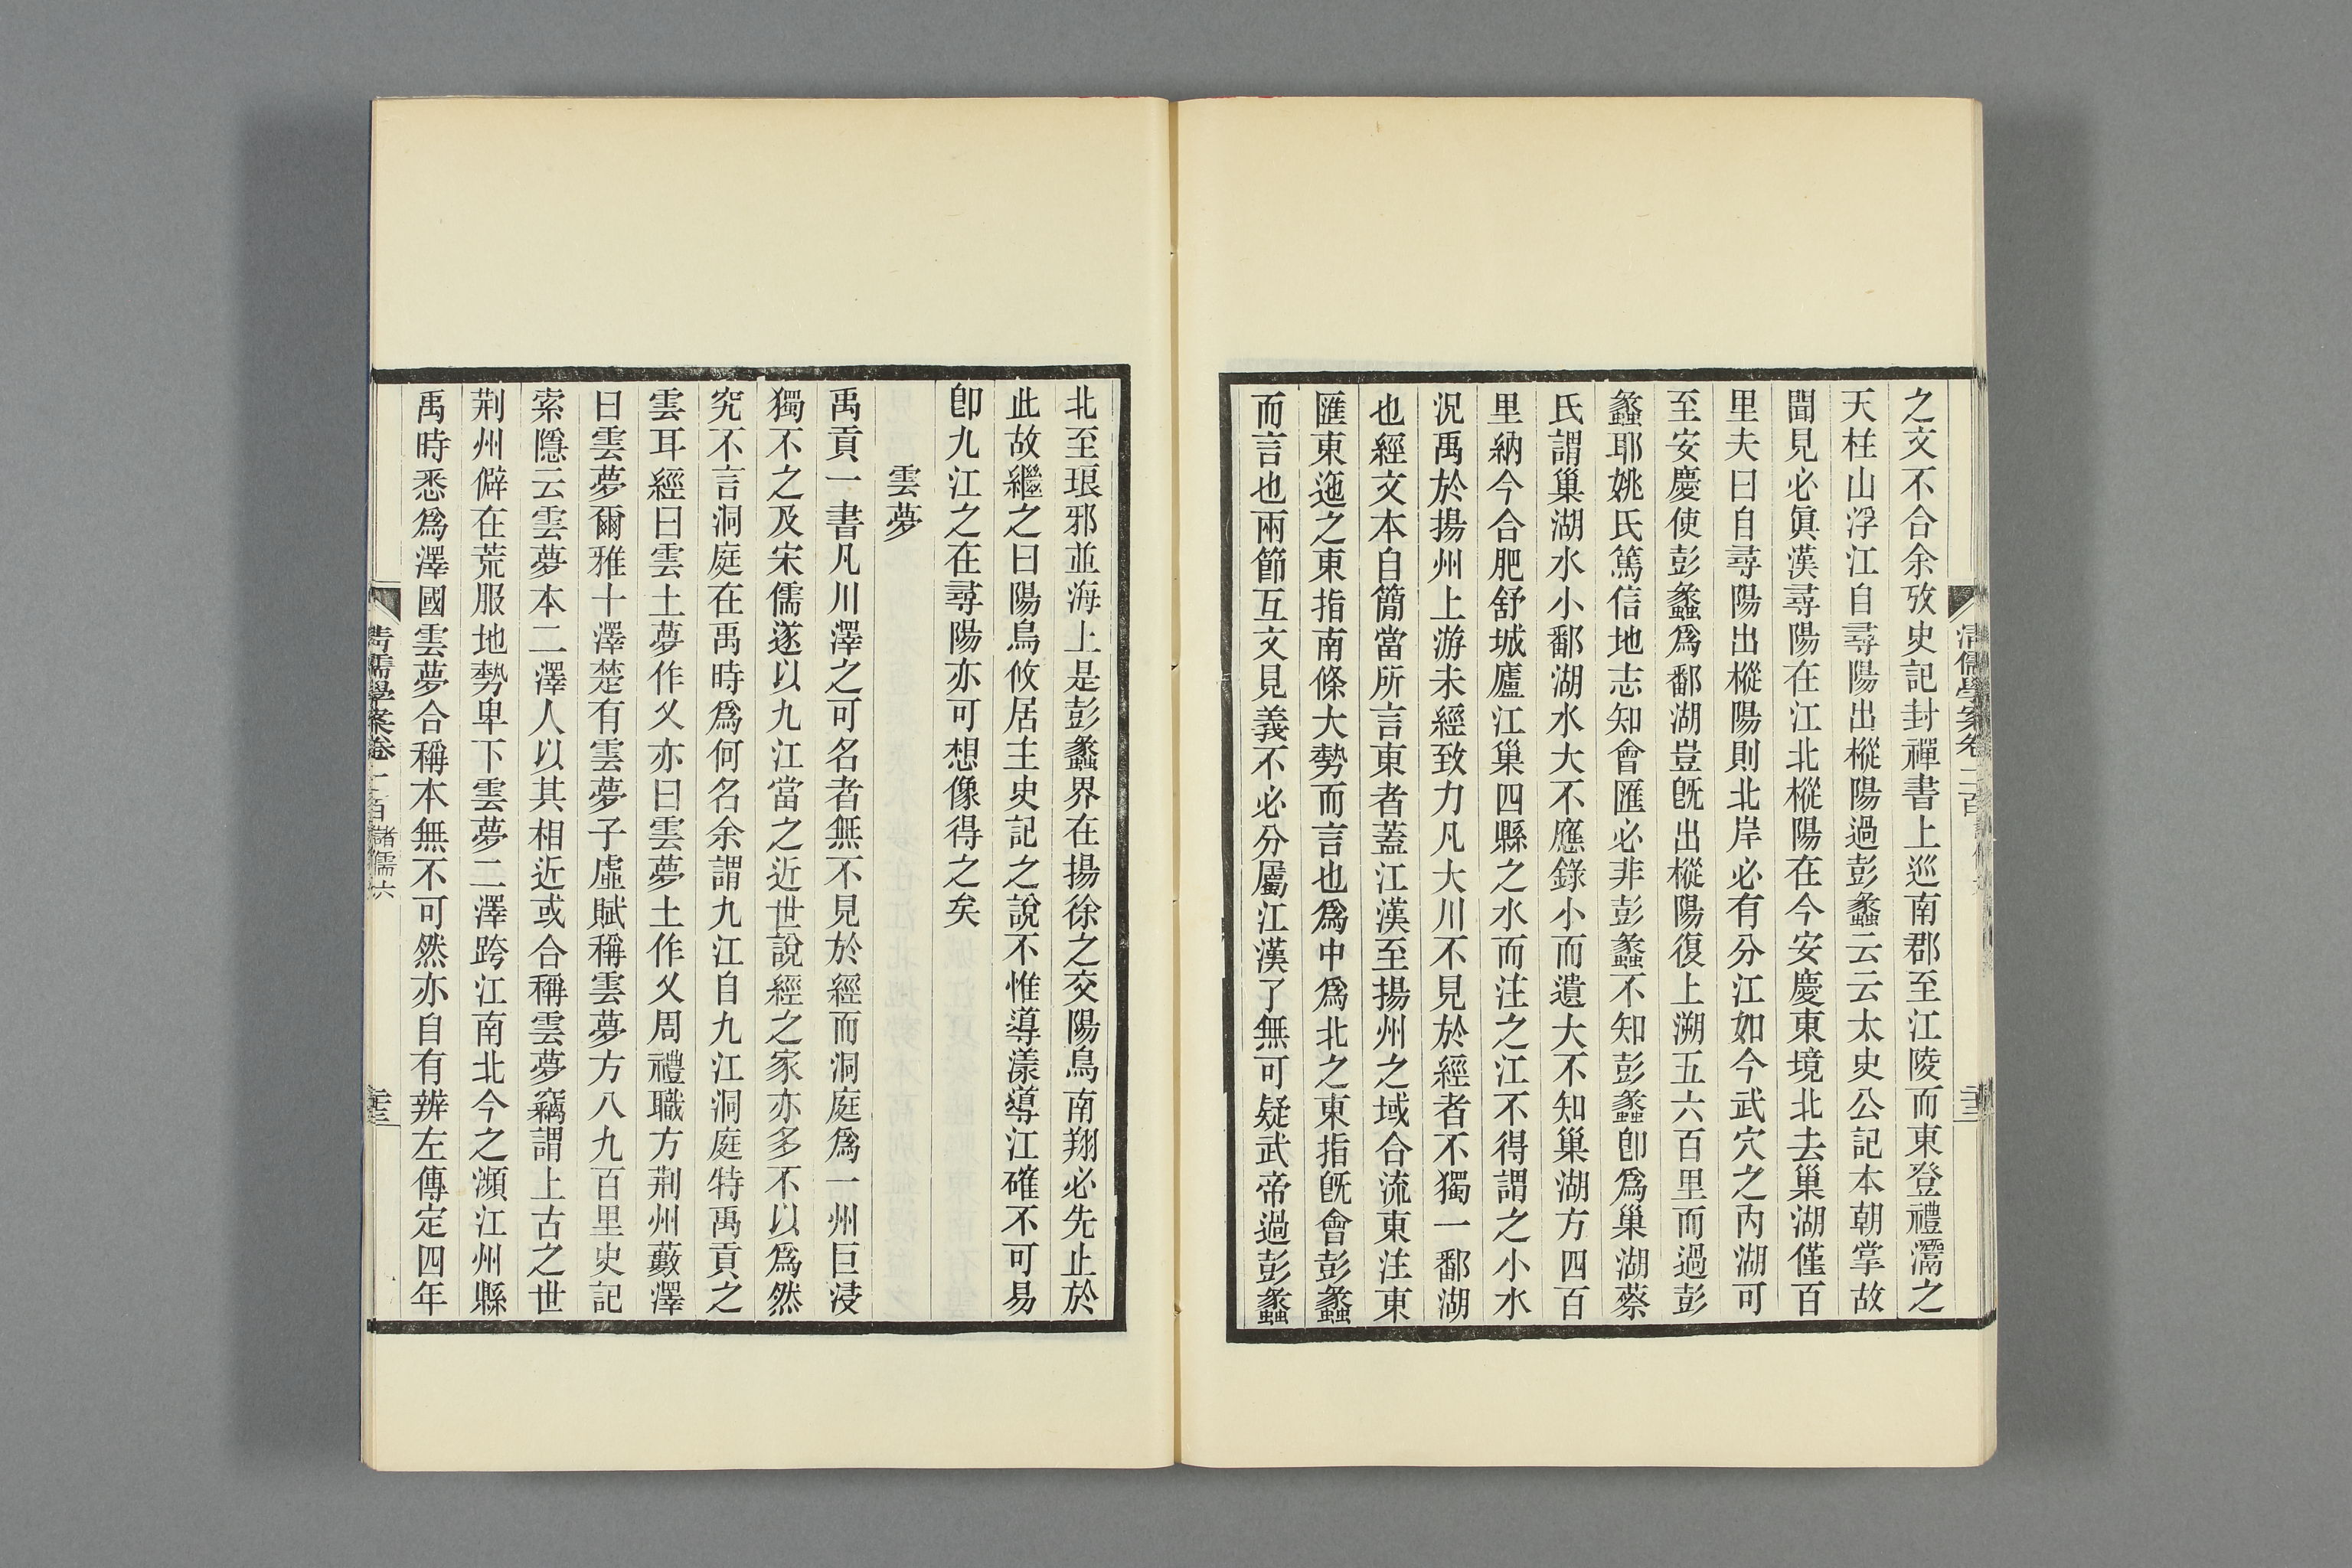 之文不合余攷史記封禪書上巡南郡至江陵而東登禮灊之
天柱山浮江自尋陽出樅陽過彭蠡云云太史公記本朝掌故
聞見必眞漢尋陽在江北樅陽在今安慶東境北去巢湖僅百
里夫曰自尋陽出樅陽則北岸必有分江如今武穴之內湖可
至安慶使彭蠡爲鄱湖豈旣出樅陽復上溯五六百里而過彭
蠡耶姚氏篤信地志知會匯必非彭蠡不知彭蠡卽爲巢湖蔡
氏謂巢湖水小鄱湖水大不應錄小而遺大不知巢湖方四百
里納今合肥舒城廬江巢四縣之水而注之江不得謂之小水
況禹於揚州上游未經致力凡大川不見於經者不獨一鄱湖
也經文本自簡當所言東者蓋江漢至揚州之域合流東注東
匯東迤之東指南條大勢而言也爲中爲北之東指旣會彭蠡
而言也兩節互文見義不必分屬江漢了無可疑武帝過彭蠡
清儒學案卷二百
北至琅邪並海上是彭蠡界在揚徐之交陽鳥南翔必先止於
此故繼之曰陽鳥攸居主史記之說不惟導漾導江確不可易
卽九江之在尋陽亦可想像得之矣
雲夢
禹貢一書凡川澤之可名者無不見於經而洞庭爲一州巨浸
獨不之及宋儒遂以九江當之近世說經之家亦多不以爲然
究不言洞庭在禹時爲何名余謂九江自九江洞庭特禹貢之
雲耳經曰雲土夢作乂亦曰雲夢土作乂周禮職方荆州藪澤
曰雲夢爾雅十澤楚有雲夢子虛賦稱雲夢方八九百里史記
索隱云雲夢本二澤人以其相近或合稱雲夢竊謂上古之世
荆州僻在荒服地勢卑下雲夢二澤跨江南北今之瀕江州縣
禹時悉爲澤國雲夢合稱本無不可然亦自有辨左傳定四年
清儒學案卷二百 諸儒六